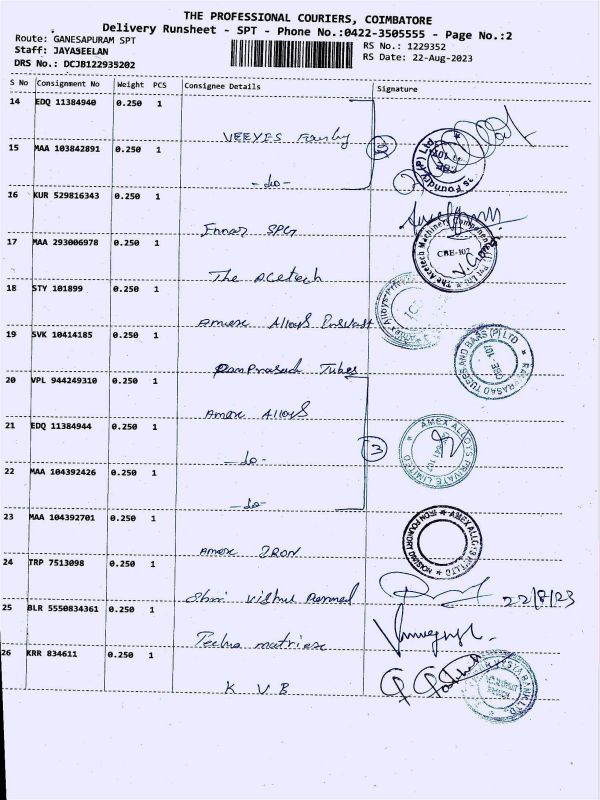 THE PROFESSIONAL COURIERS, COIMBATORE
Delivery Runsheet - SPT - Phone No.:0422-3505555 - Page No.:2
Route: GANESAPURAM SPT
Staff: JAYASEELAN
DRS No.: DCJB122935202
RS No.: 1229352
RS Date: 22-Aug-2023
S No Consignment No Weight PCS Consignee Details Signature
14 EDQ 11384940 0.250 1
VEEYES
15 MAA 103842891 0.250 1
-do-
16 KUR 529816343 0.250 1
SPG
17 MAA 293006978 0.250 1
The Acetech
18 STY 101899 0.250 1
Amex Alloys
19 SVK 10414185 0.250 1
Ramprasad Tubes
20 VPL 944249310 0.250 1
Amex Alloys
21 EDQ 11384944 0.250 1
-do-
3
22 MAA 104392426 0.250 1
-do-
23 MAA 104392701 0.250 1
Amex IRON
24 TRP 7513098 0.250 1
Shri Vishnu
22/8/23
25 BLR 5550834361 0.250 1
Techno
26 KRR 834611 0.250 1
K V B
The Acetech Machinery Components
CBE-107
RAMPRASAD TUBES AND BARS (P) LTD
CBE - 107
AMEX ALLOYS PRIVATE LIMITED
VYSYA BANK LTD.